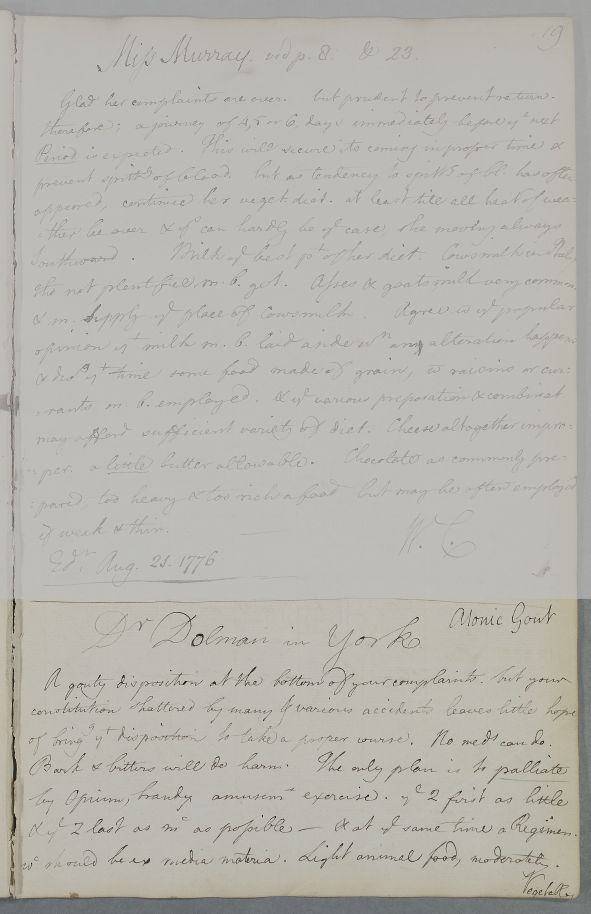 19
Miss Murray. vid p. 8. & 23.
Glad her complaints are over. but prudent to prevent return.
therefore; a journey of 4, 5 or 6, days immediately before yᵉ next
Period is expected. This will secure its coming in proper time &
prevent spittᵍ of blood. but as tendency to spittᵍ of bl. has often
appeared, continue her veget. diet. at least till all heat of wea-
:ther be over & yᵗ can hardly be yᵉ case, she moving always
Southward. Milk yᵉ best pᵗ of her diet. Cows milk in
tho not plentiful, m. b. got. Asses & goats milk very common
& m. supply yᵉ place of Cows milk. Agree wᵗ yᵉ popular
opinion yᵗ milk m. b. laid aside wⁿ any alteration happens
& durᵍ yᵗ time some food made of grain, wᵗ raisins or cur:
:rants m. b. employed. & yᵉ various preparation & combinat
may afford sufficient variety of diet. Cheese altogether impro-
:per. a little butter allowable. Chocolate as commonly pre-
:pared, too heavy & too rich a food but may be often employed
if weak & thin.
W. C.
Edʳ. Aug. 21. 1776
Atonic Gout
Dʳ Dolman in York
A gouty disposition at the bottom of your complaints. but your
constitution shattered by many & various accidents leaves little hope
of bringᵍ yᵗ disposition to take a proper course. No medˢ can do.
Bark & bitters will do harm. The only plan is to palliate
by Opium, brandy amusemᵗ exercise. yᵉ 2 first as little
& yᵉ 2 last as mᶜ as possible — & at yᵉ same time a Regimen.
wᶜ should be ex media materia. Light animal food, moderately.
Vegetable